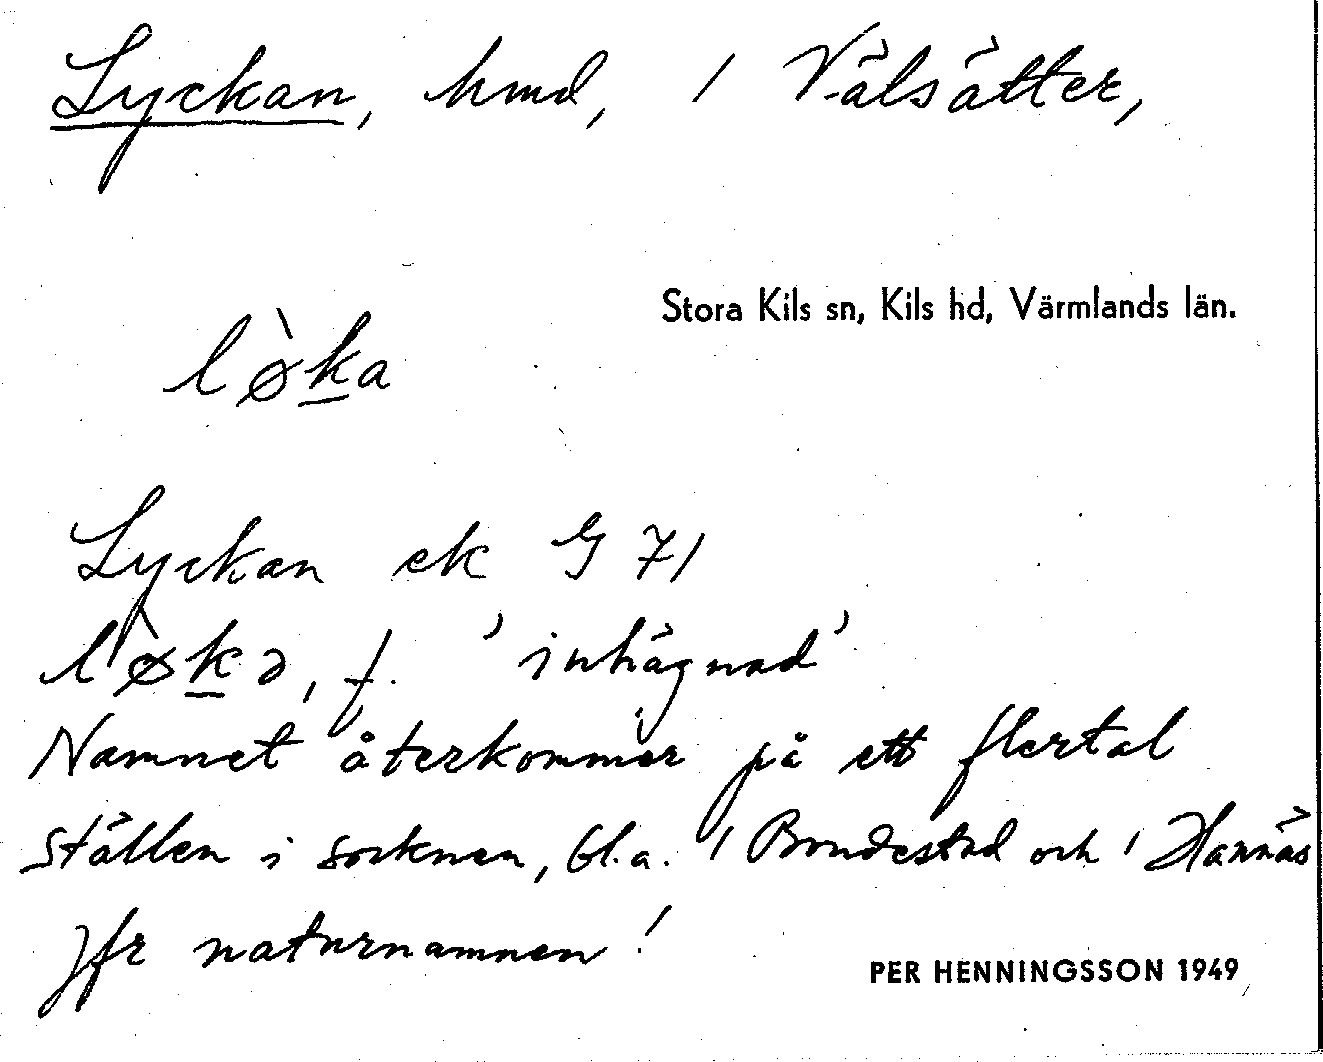 Lyckan, hmd, i Välsätter,
Stora Kils sn, Kils hd, Värmlands län.
lø̀ka
Lyckan ek G 71
lø̀kə, f. 'inhägnad'
Namnet återkommer på ett flertal
ställen i socknen, bl.a. i Bondestad och i Hannäs
Jfr naturnamnen!
PER HENNINGSSON 1949